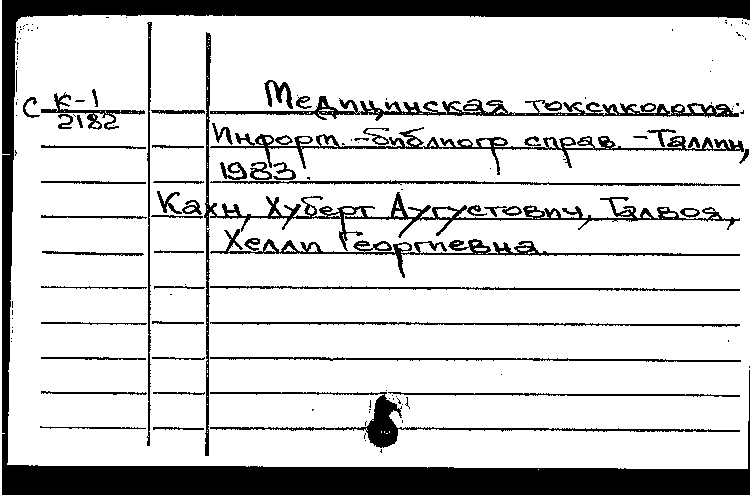 Медицинская токсикология:
С К-1
2182
Информ.-библиогр. справ. - Таллин,
1983.
Кахн, Хуберт Аугустович, Талвоя,
Хелли Георгиевна.